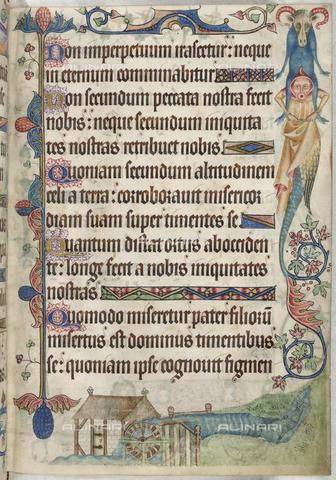 Non imperpetuum irascetur: neque
in eternum comminabitur
Non secundum peccata nostra fecit
nobis: neque secundum iniquita
tes nostras retribuet nobis
Quoniam secundum altitudinem
celi a terra: corroborauit misericor
diam suam super timentes se
Quantum distat ortus abocciden
te: longe fecit a nobis iniquitates
nostras
Quomodo miseretur pater filiorū
misertus est dominus timentibus
se: quoniam ipse cognouit figmen
ALINARI
ALINARI